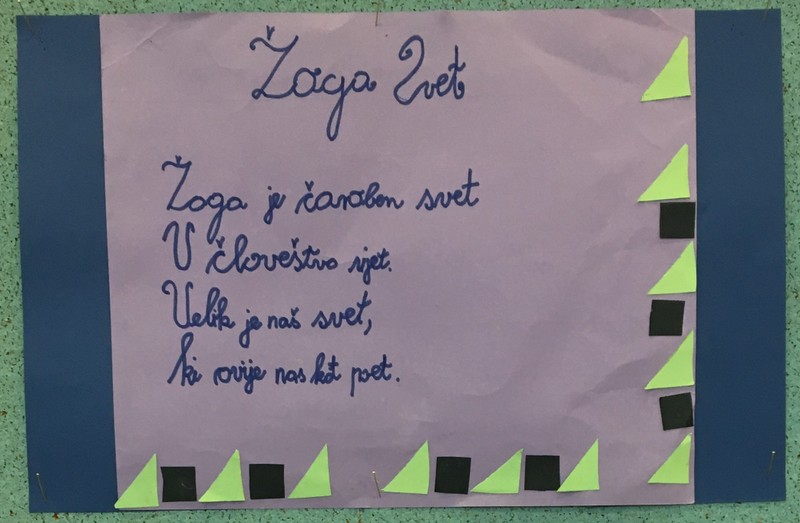 Žoga Svet
Žoga je čaroben svet
V človeštvo ujet.
Velik je naš svet,
ki ovije nas kot poet.